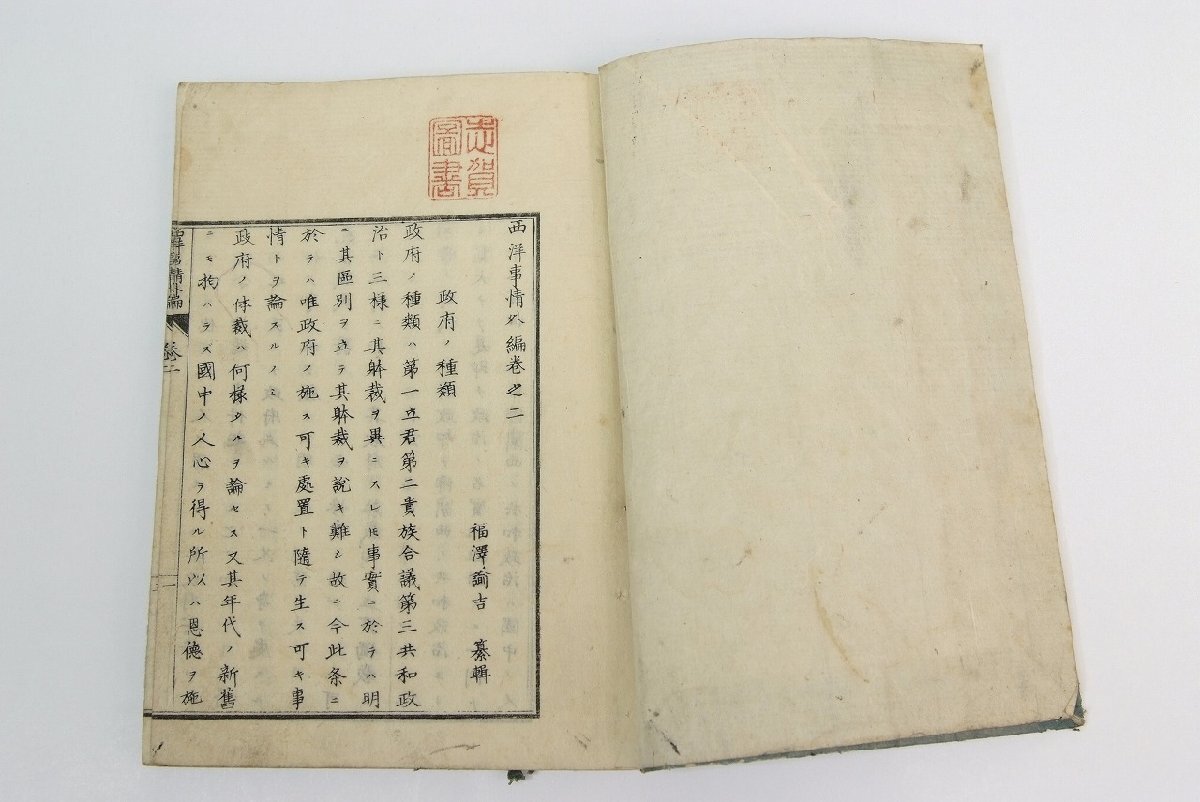 志賀
圖書
西洋事情外編卷之二
福澤諭吉 纂輯
政府ノ種類
政府ノ種類ハ第一立君第二貴族合議第三共和政
治ト三様ニ其躰裁ヲ異ニスレ𪜈事實ニ於テハ明
ニ其區別ヲ立テ其躰裁ヲ說キ難シ故ニ今此条ニ
於テハ唯政府ノ施ス可キ處置ト隨テ生ス可キ事
情トヲ論スルノミ
政府ノ体裁ハ何様タルヲ論セス又其年代ノ新舊
ニモ拘ハラズ國中ノ人心ヲ得ル所以ハ恩德ヲ施
西洋事情外編
卷二